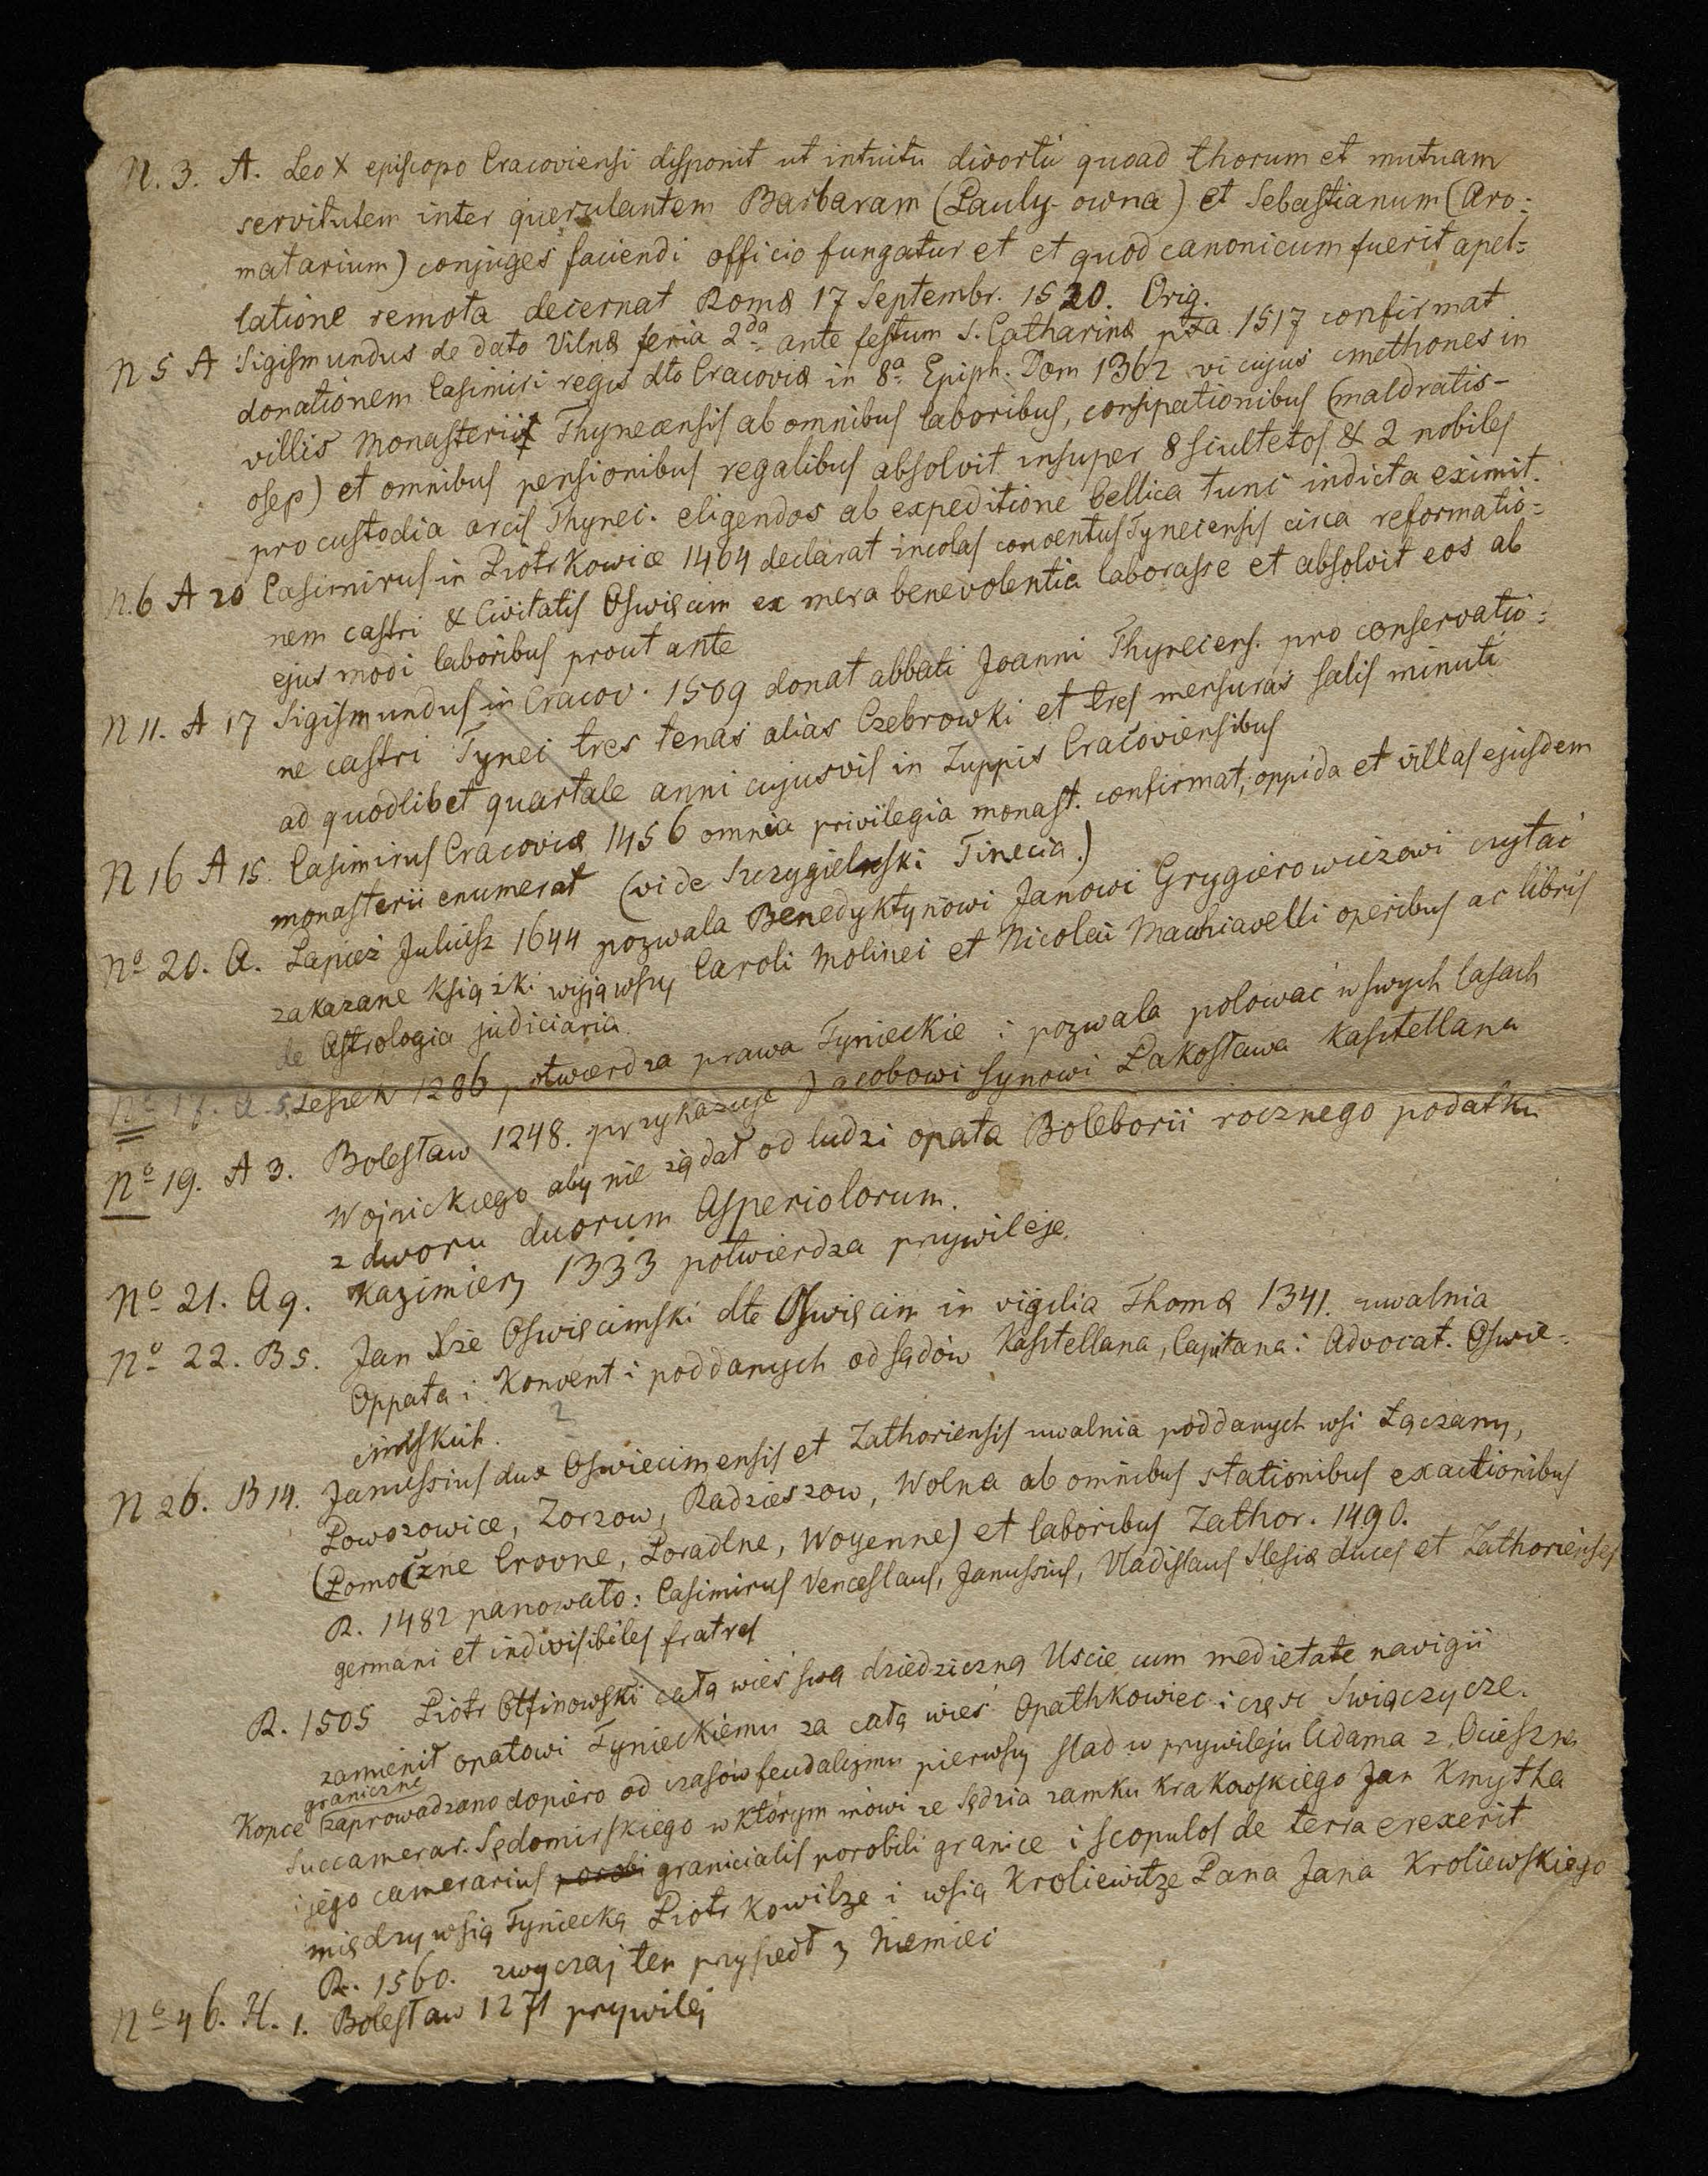 N. 3. A. Leo X episcopo Cracoviensi disponit ut intuitu divortii quoad thorum et mutuam
servitutem inter querulantem Barbaram (Pauly-owna) et Sebastianum (Aro:
matarium) conjuges faciendi officio fungatur et et quod canonicum fuerit apel=
latione remota decernat Romæ 17 Septembr. 1520. Orig.
N 5 A Sigismundus de dato Vilnæ feria 2da ante festum S. Catharinæ 1517 confirmat
donationem Casimiri regis dto Cracoviæ in 8a Epiph. Dom 1362 vi cujus cmethones in
villis Monasterii Thynecensis ab omnibus laboribus, consipationibus (maldratis-
osep) et omnibus pensionibus regalibus absolvit insuper 8 scultetos & 2 nobiles
pro custodia arcis Thynec. eligendos ab expeditione bellica tunc indicta eximit.
N. 6 A 20 Casimirus in Piotrkowice 1464 declarat incolas conventus Tynecensis circa reformatio=
nem castri & Civitatis Oswięcim ex mera benevolentia laborasse et absolvit eos ab
ejusmodi laboribus prout ante
N 11. A 17 Sigismundus in Cracov. 1509 donat abbati Joanni Thynecens. pro conservatio=
ne castri Tynec tres tenas alias Czebrowki et tres mensuras salis minuti
ad quodlibet quartale anni cujusvis in Zuppis Cracoviensibus
N 16 A 15. Casimirus Cracoviæ 1456 omnia privilegia monast. confirmat, oppida et villas ejusdem
monasterii enumerat (vide Szczygielski Tinecia.)
No 20. A. Papież Juliusz 1644 pozwala Benedyktynowi Janowi Grygierowiczowi czytać
zakazane książki wyjąwszy Caroli Molinei et Nicolai Machiavelli operibus ac libris
de Astrologia judiciaria.
No 17. A 5. Leszek 1286 potwierdza prawa Tynieckie i pozwala polować w swych lasach
No 19. A 3. Bolesław 1248. przykazuje Jacobowi synowi Pakosława Kasztellana
Wojnickiego aby nie żądał od ludzi opata Boleborii rocznego podatku
z dworu duorum Asperiolorum.
No 21. A 9. Kazimierz 1333 potwierdza przywileje.
No 22. B 5. Jan Xże Oswięcimski dto Oswięcim in vigilia Thomæ 1341. uwalnia
Oppata i Konvent i poddanych od sądów Kasztellana, Capitana i Advocat. Oswie-
cimskich.
N 26. B 14. Janussius dux Oswiecimensis et Zathoriensis uwalnia poddanych wsi Łączany,
Powozowice, Zorzow, Radzieszow, Wolna ab omnibus stationibus exactionibus
(Pomoczne Crovne, Poradlne, Woyenne) et laboribus Zathor. 1490.
R. 1482 panowało: Casimirus Venceslaus, Janussius, Vladislaus Slesiæ duces et Zathorienses
germani et indivisibiles fratres
R. 1505 Piotr Otfinowski całą wieś swą dziedziczną Uscie cum medietate navigii
zamienił opatowi Tynieckiemu za całą wieś Opathkowiec i część Swiączycze.
graniczne
Kopce zaprowadzano dopiero od czasów feudalizmu pierwszy slad w przywileju Adama z Ocieszna
Succamerar. Sędomirskiego w którym mówi ze Sędzia zamku krakowskiego Jan Kmytha
i jego camerarius porobi granicialis porobili granice i scopulos de terra erexerit
między wsią Tyniecką Piotrkowilze i wsią Kroliewitze Pana Jana Kroliewskiego
R. 1560. zwyczaj ten przyszedł z Niemiec
No 46. H. 1. Bolesław 1271 przywilej